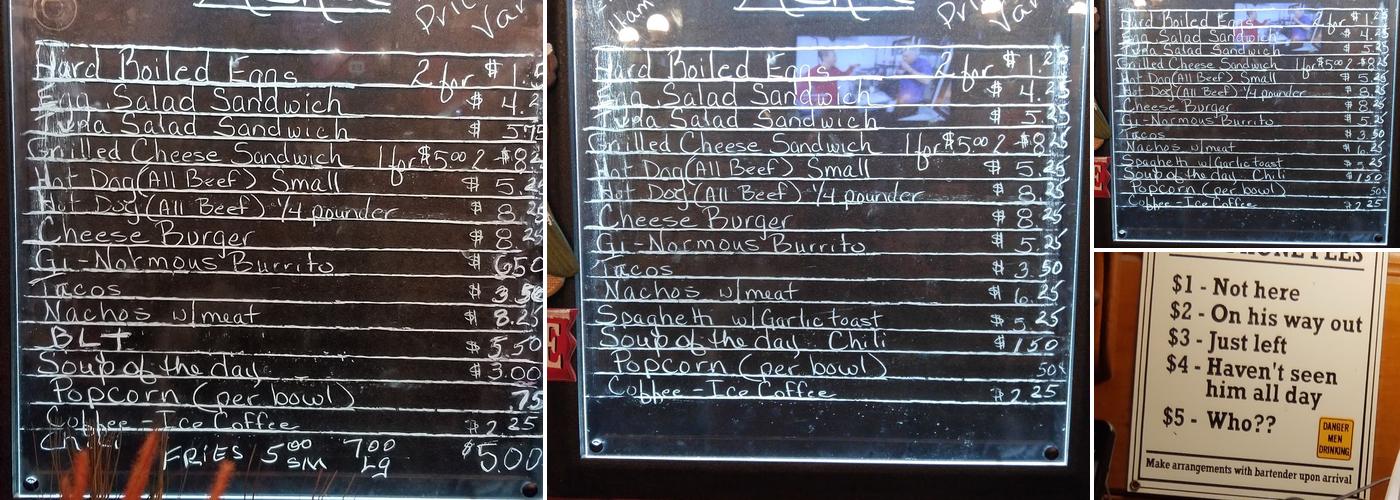 Pric
Var
Hard Boiled Eggs 2 for $1.5
Egg Salad Sandwich $4.2
Tuna Salad Sandwich $5.75
Grilled Cheese Sandwich 1 for $5.00 2 - $8.2
Hot Dog (All Beef) Small $5.25
Hot Dog (All Beef) 1/4 pounder $8.25
Cheese Burger $8.25
Gi-Normous Burrito $6.50
Tacos $3.50
Nachos w/meat $8.25
BLT $5.50
Soup of the day $3.00
Popcorn (per bowl) .75
Coffee - Ice Coffee $2.25
Chili FRIES 5.00 SM 7.00 Lg $5.00
Ham
Pri
Var
Hard Boiled Eggs 2 for $1.25
Egg Salad Sandwich $4.25
Tuna Salad Sandwich $5.25
Grilled Cheese Sandwich 1 for $5.00 2 - $8.25
Hot Dog (All Beef) Small $5.25
Hot Dog (All Beef) 1/4 pounder $8.25
Cheese Burger $8.25
Gi-Normous Burrito $5.25
Tacos $3.50
Nachos w/meat $6.25
Spaghetti w/Garlic toast $5.25
Soup of the day Chili $1.50
Popcorn (per bowl) .50¢
Coffee - Ice Coffee $2.25
E
Hard Boiled Eggs 2 for $1.25
Egg Salad Sandwich $4.25
Tuna Salad Sandwich $5.25
Grilled Cheese Sandwich 1 for $5.00 2 - $8.25
Hot Dog (All Beef) Small $5.25
Hot Dog (All Beef) 1/4 pounder $8.25
Cheese Burger $8.25
Gi-Normous Burrito $5.25
Tacos $3.50
Nachos w/meat $6.25
Spaghetti w/Garlic toast $5.25
Soup of the day Chili $1.50
Popcorn (per bowl) .50¢
Coffee - Ice Coffee $2.25
E
$1 - Not here
$2 - On his way out
$3 - Just left
$4 - Haven't seen
him all day
$5 - Who??
DANGER
MEN
DRINKING
Make arrangements with bartender upon arrival